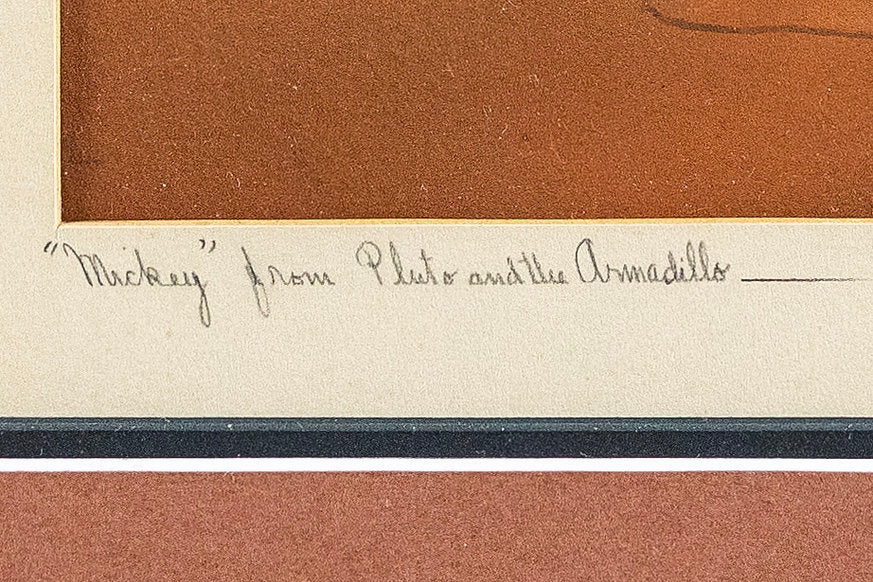 "Mickey" from Pluto and the Armadillo